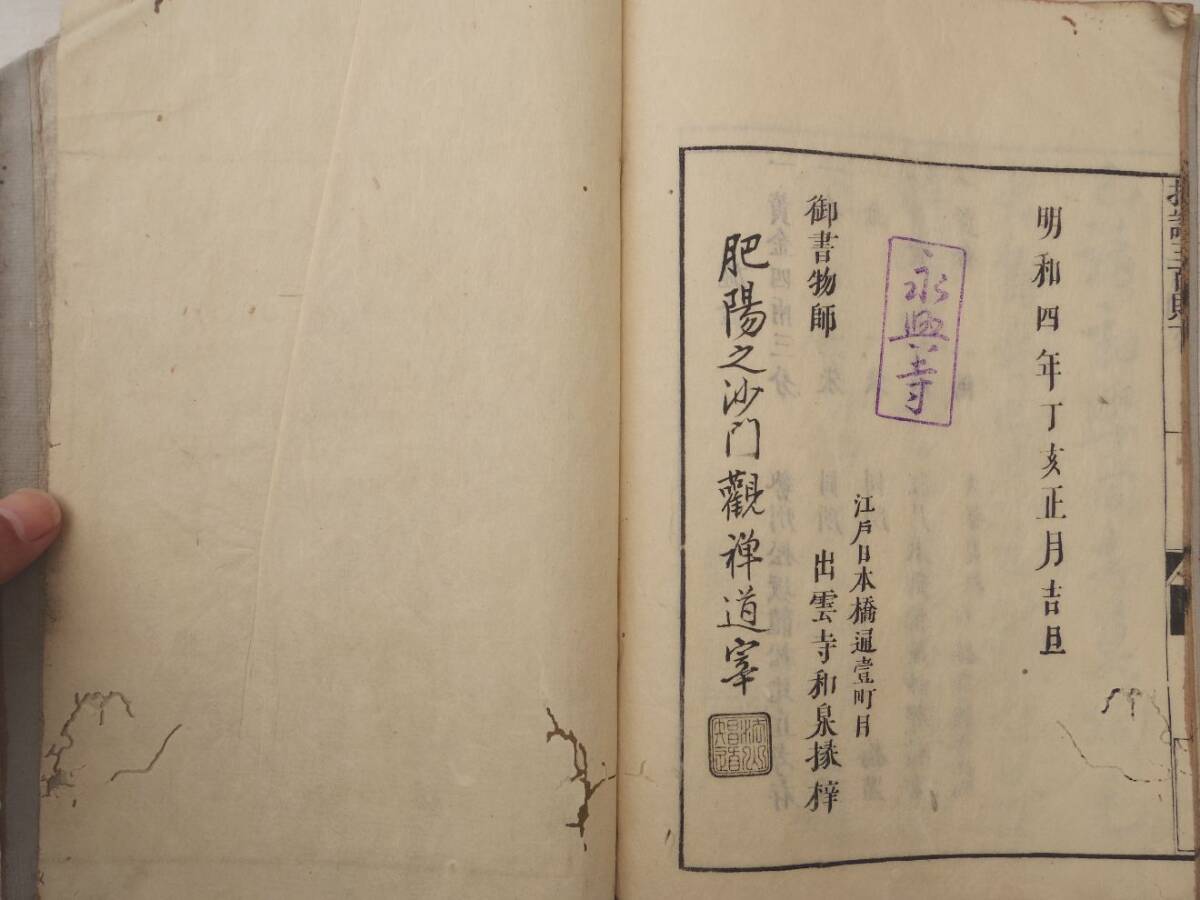 明和四年丁亥正月吉旦
永興寺
江戸日本橋通壹町目
御書物師
出雲寺和泉掾梓
肥陽之沙門觀禅道宰